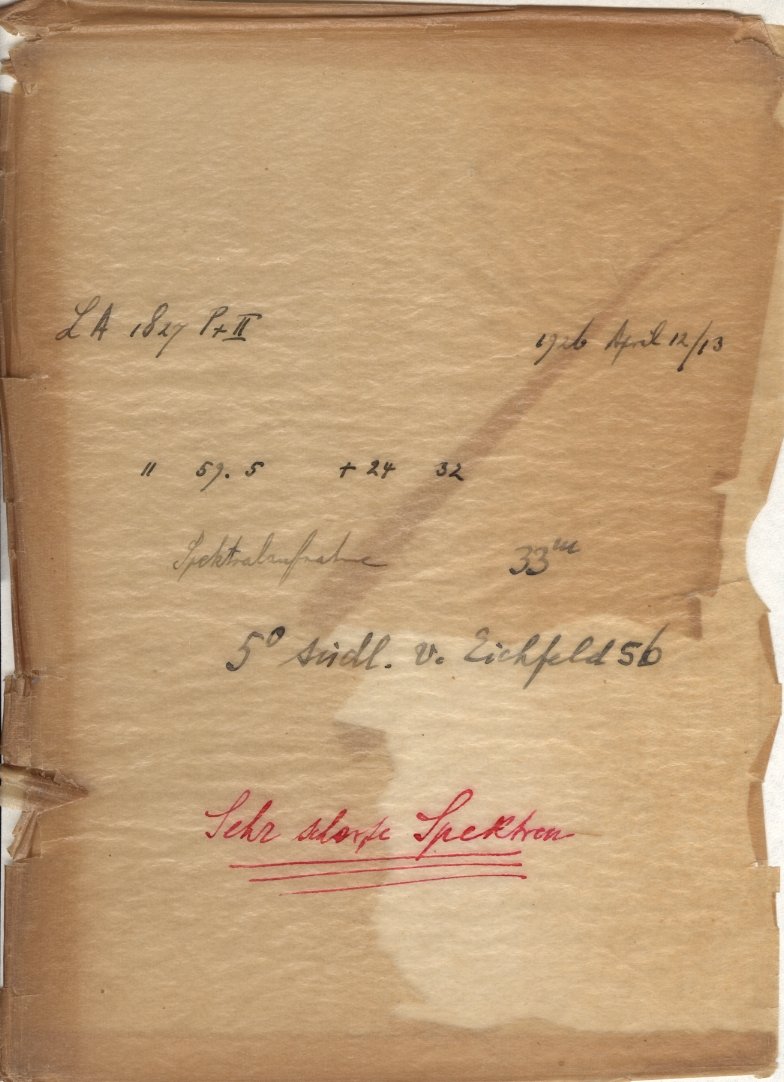 LA 1827 P+II 1926 April 12/13
11 59.5 +24 32
Spektralaufnahme 33ᵐ
5° südl. v. Eichfeld 56
Sehr scharfe Spektren